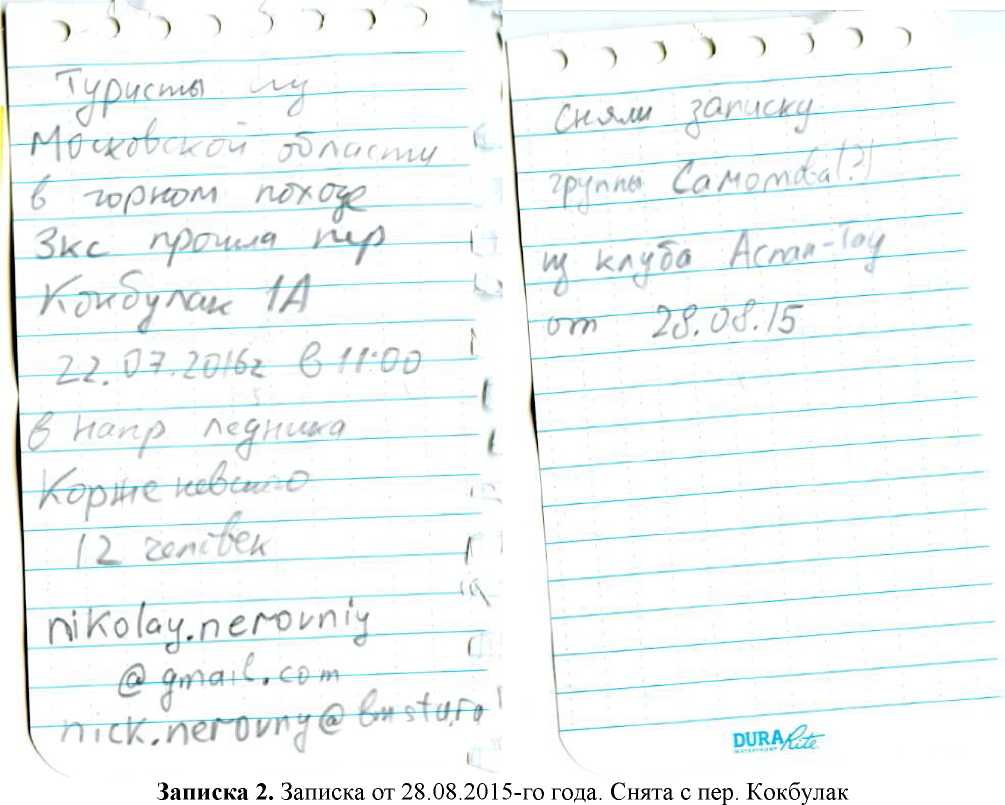 Туристы из
Московской области
в горном походе
3кс прошла пер
Кокбулак 1А
22.07.2016г в 11:00
в напр ледника
Корженевского
12 человек
nikolay.nerovniy
@gmail.com
nick.nerovny@bmstu.ru
сняли записку
группы Самотова(?)
из клуба Аспан-Тау
от 28.08.15
DURA Rite
WATERPROOF
Записка 2. Записка от 28.08.2015-го года. Снята с пер. Кокбулак